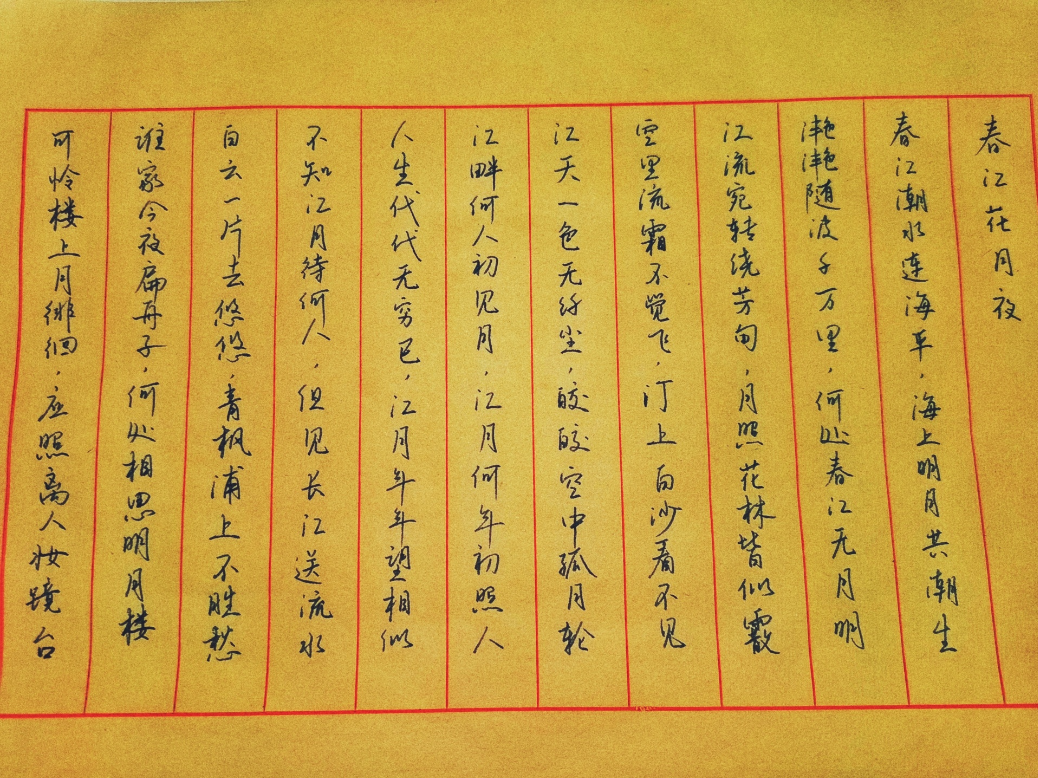 春江花月夜
春江潮水连海平，海上明月共潮生
滟滟随波千万里，何处春江无月明
江流宛转绕芳甸，月照花林皆似霰
空里流霜不觉飞，汀上白沙看不见
江天一色无纤尘，皎皎空中孤月轮
江畔何人初见月，江月何年初照人
人生代代无穷已，江月年年望相似
不知江月待何人，但见长江送流水
白云一片去悠悠，青枫浦上不胜愁
谁家今夜扁舟子，何处相思明月楼
可怜楼上月徘徊，应照离人妆镜台